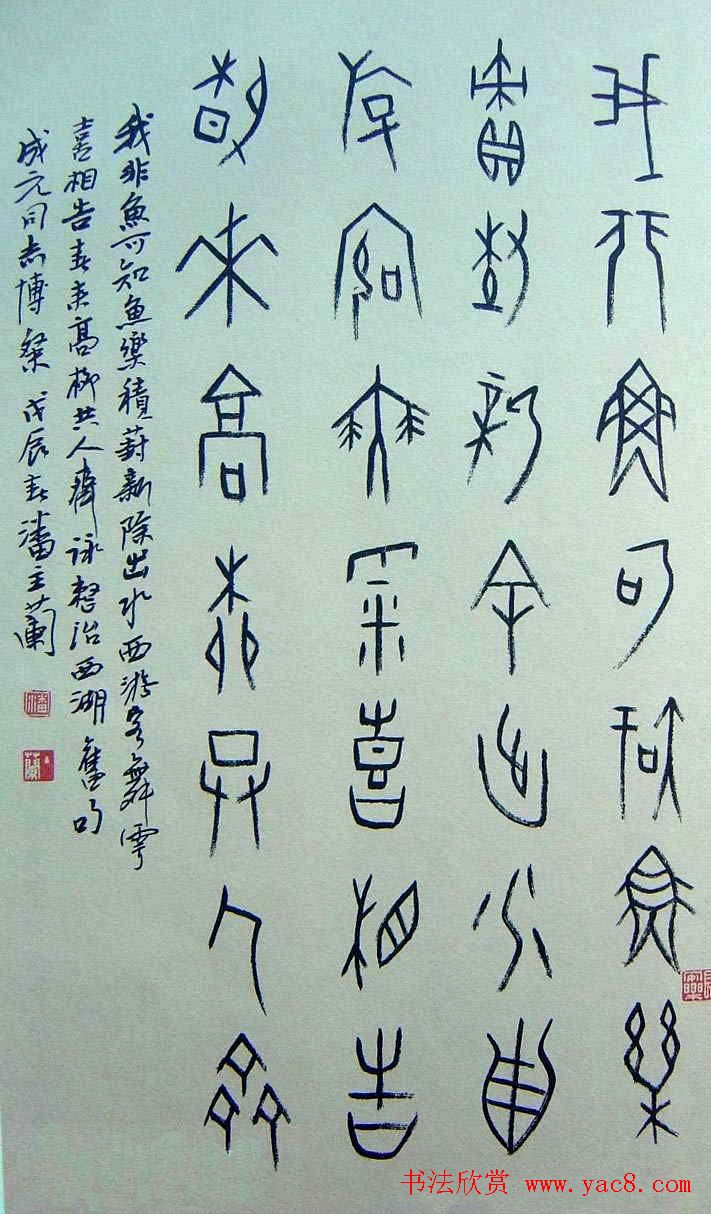 我非魚可知魚樂
責封新余出水西
斿客舞雩喜相告
春來高柳共人齊
我非魚可知魚樂積葑新除出水西游客舞雩
喜相告春來高柳共人齊詠整治西湖舊句
成元同志博粲戊辰春潘主蘭
潘
蘭
书法欣赏 www.yac8.com